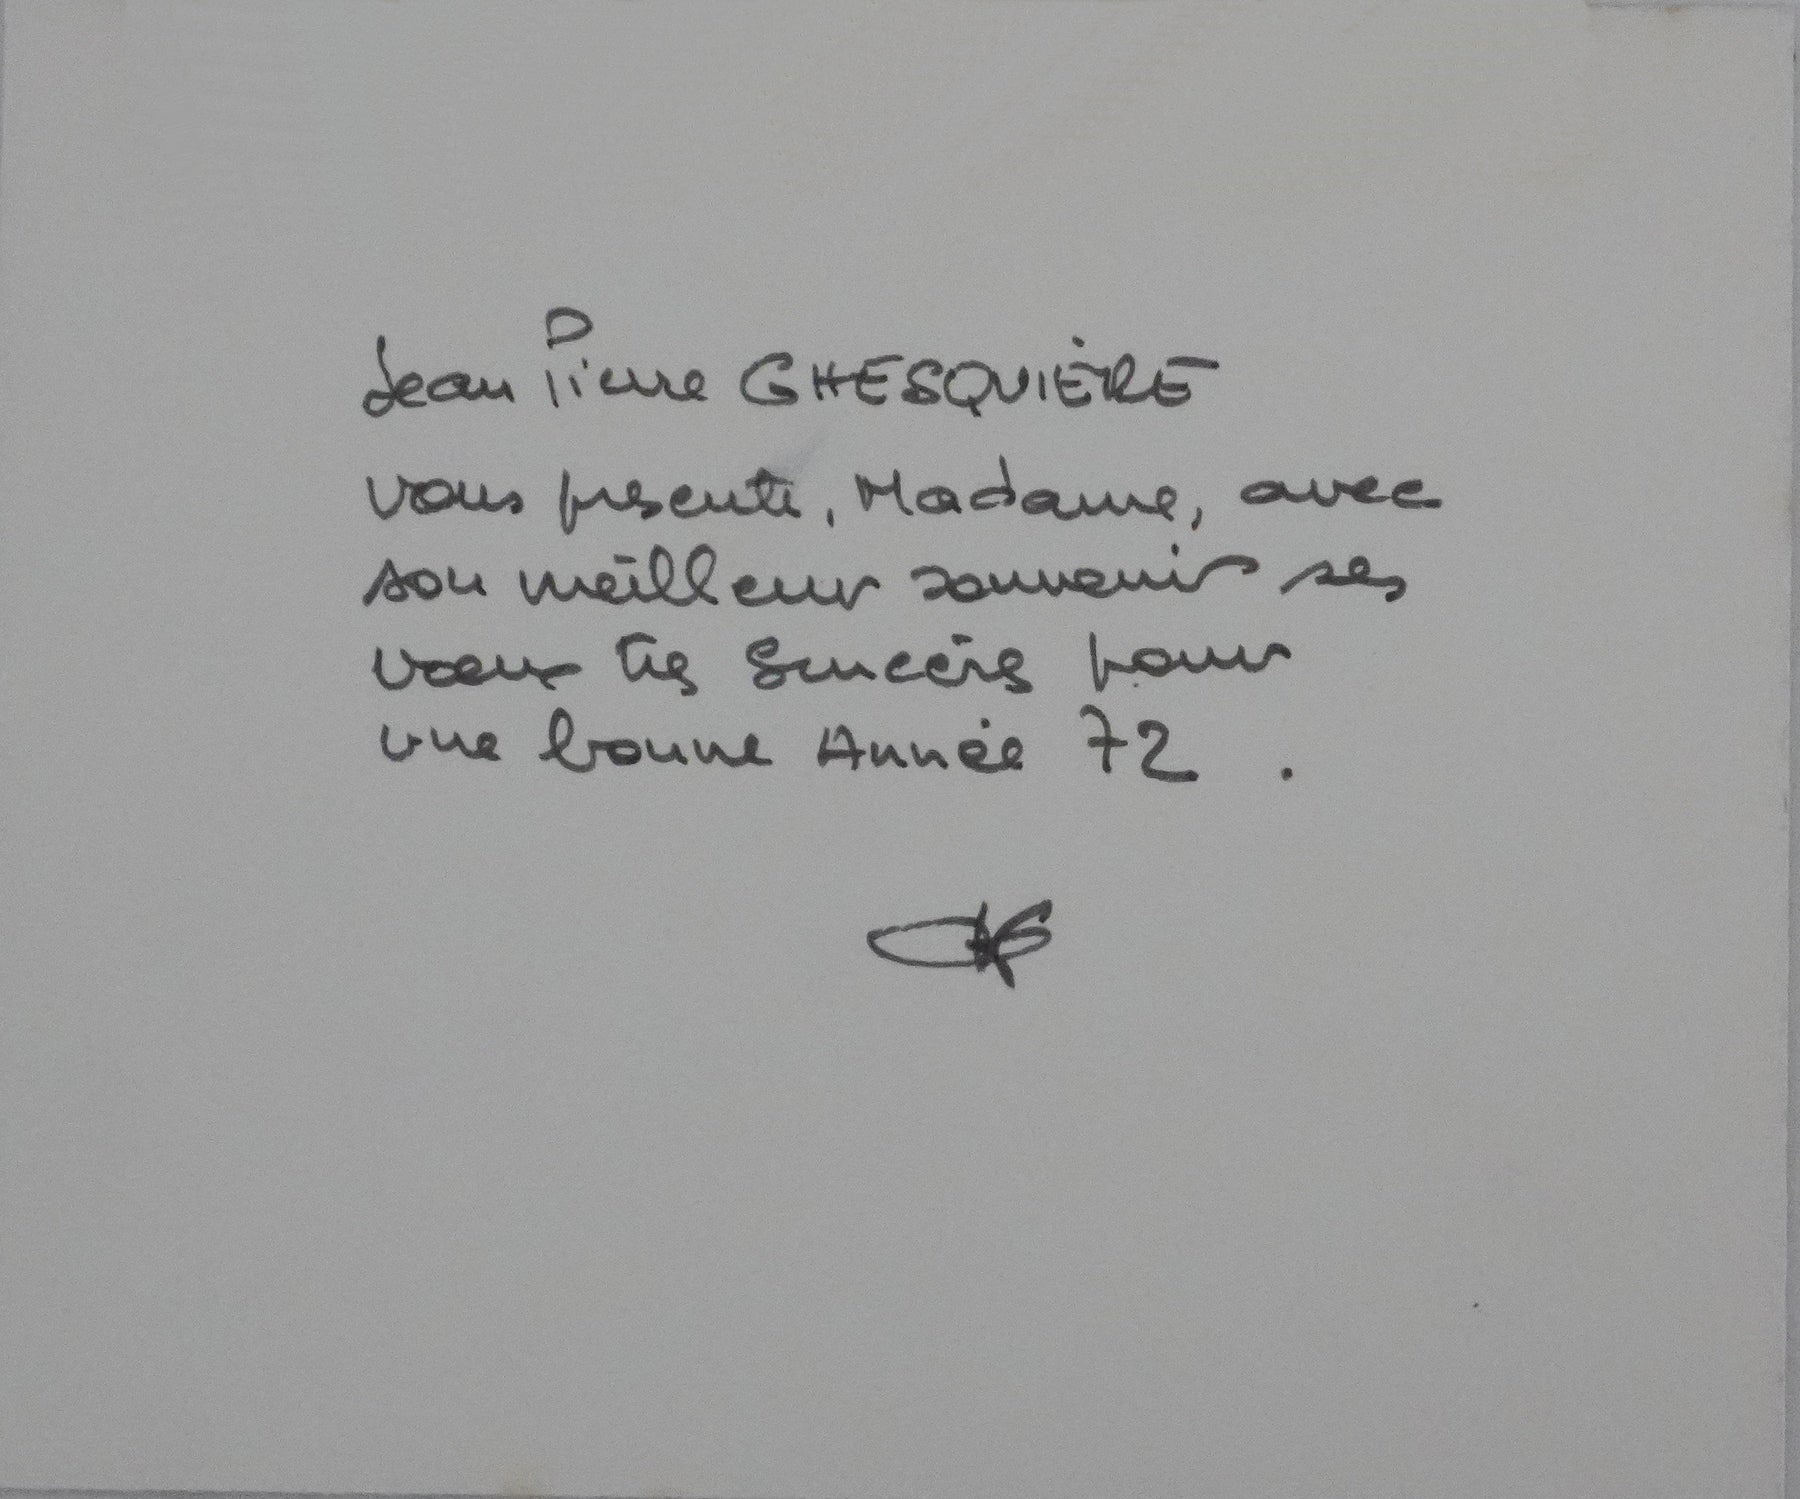 Jean Pierre GHESQUIÈRE
vous présente, Madame, avec
son meilleur souvenir ses
voeux très sincères pour
une bonne Année 72 .